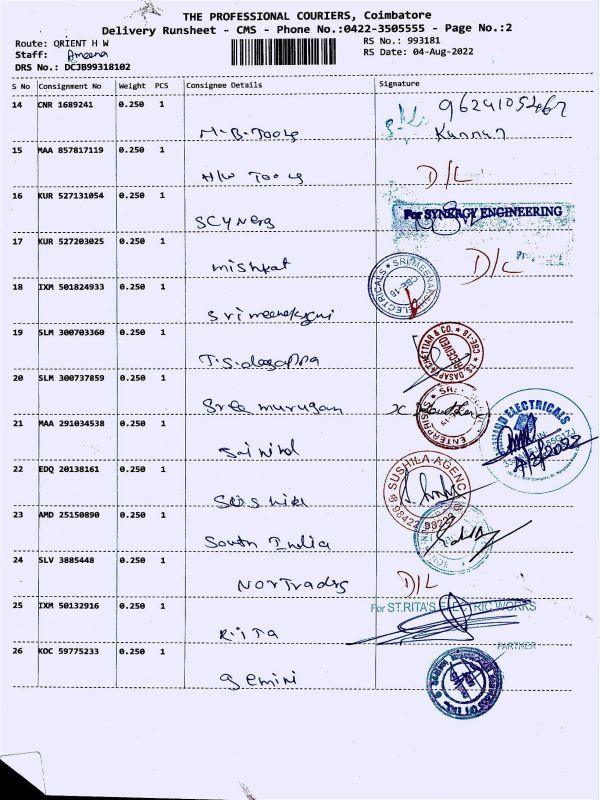 THE PROFESSIONAL COURIERS, Coimbatore
Delivery Runsheet - CMS - Phone No.:0422-3505555 - Page No.:2
Route: QRIENT H W
RS No.: 993181
Staff: Ameena
RS Date: 04-Aug-2022
DRS No.: DCJB99318102
S No Consignment No Weight PCS Consignee Details Signature
14 CNR 1689241 0.250 1
9624105
M.B.Tools
Kannan
15 MAA 857817119 0.250 1
H/W Tools D/L
16 KUR 527131054 0.250 1
For SYNERGY ENGINEERING
SCynerg
17 KUR 527203025 0.250 1
mishkat D/L
18 IXM 501824933 0.250 1
SRI MEENAKSHI ELECTRICALS
CBE-18
Srimeenakshi
19 SLM 300703360 0.250 1
T.S. DASAPPA CHETTIAR & CO. CBE-18
RECEIVED
T.S.dasappa
20 SLM 300737859 0.250 1
Sree murugan
ENTERPRISES
21 MAA 291034538 0.250 1
HIND ELECTRICALS
Sai hind
4/8/2022
22 EDQ 20138161 0.250 1
SUSHILA AGENC
98422 98222
Sushila
23 AMD 25150890 0.250 1
South India
24 SLV 3885448 0.250 1
Nortraders D/L
25 IXM 50132916 0.250 1
For ST.RITA'S ELECTRIC WORKS
Rita
PARTNER
26 KOC 59775233 0.250 1
gemini